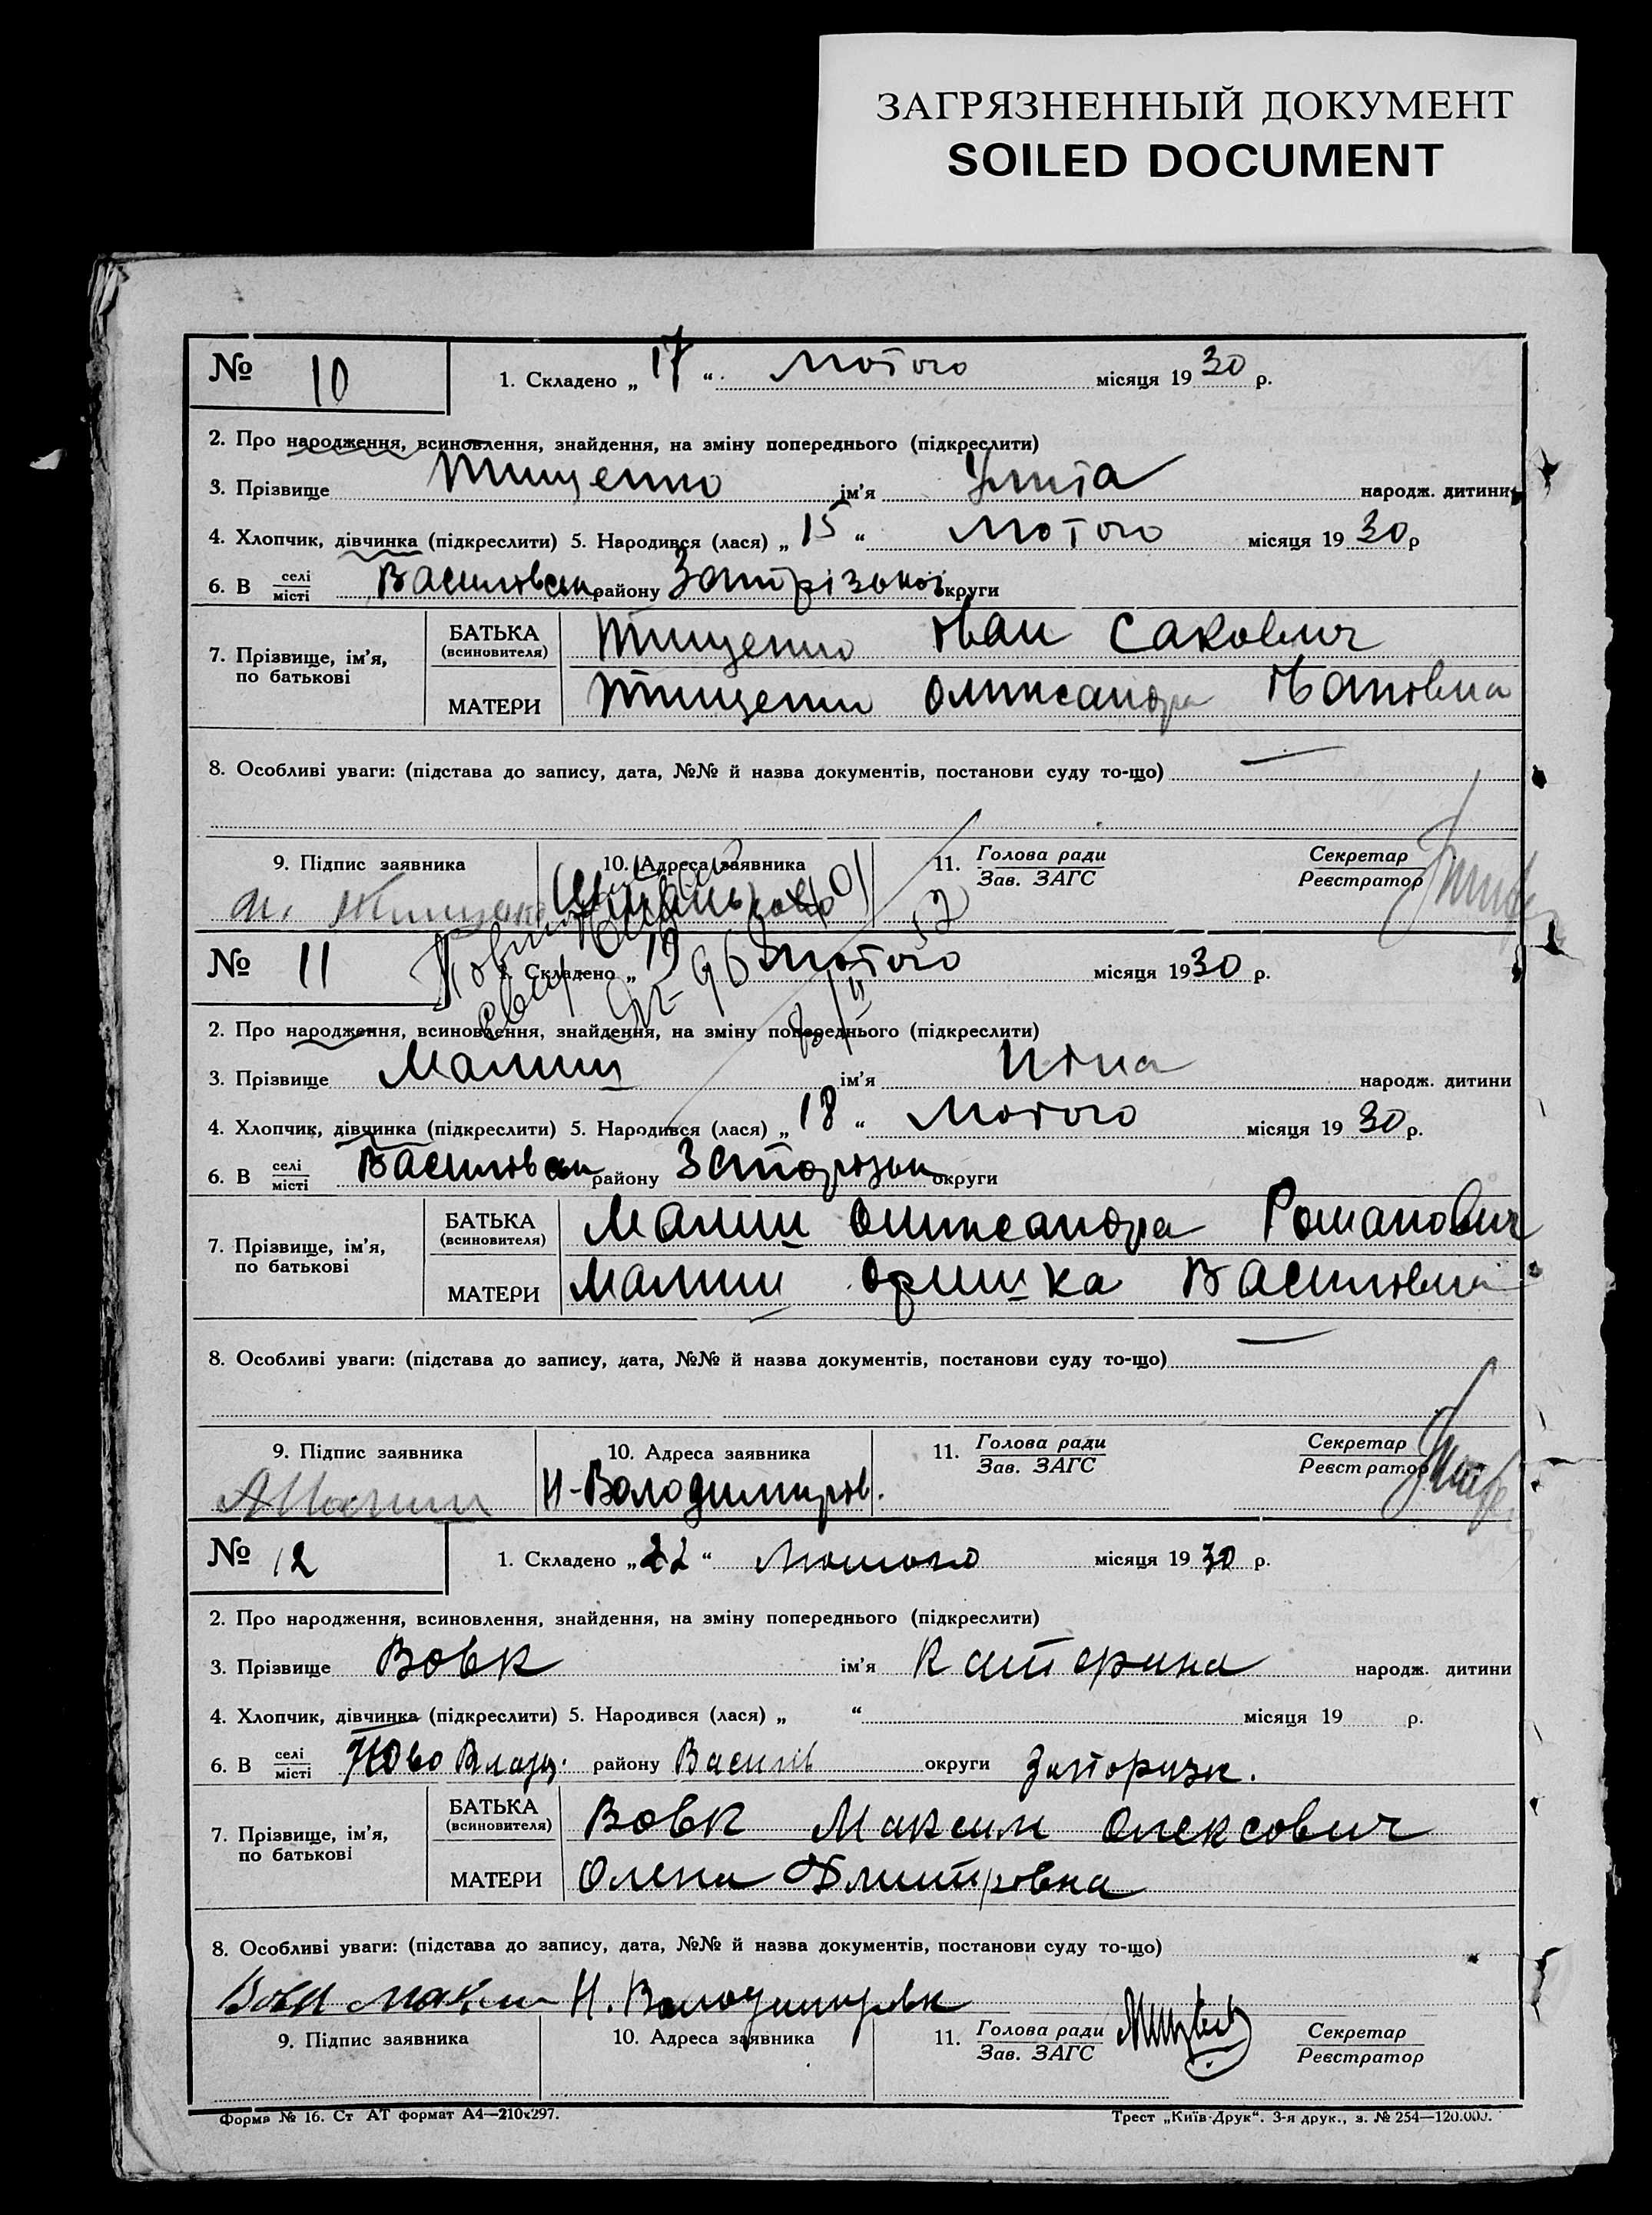 ЗАГРЯЗНЕННЫЙ ДОКУМЕНТ
SOILED DOCUMENT
№ 10 1. Складено „ 17 “ Лютого місяця 1930 р.
2. Про народження, всиновлення, знайдення, на зміну попереднього (підкреслити)
3. Прізвище Тищенко ім'я народж. дитини
4. Хлопчик, дівчинка (підкреслити) 5. Народився (лася) „ 15 “ Лютого місяця 1930 р
6. В селі місті Василівськ району Запорізької округи
7. Прізвище, ім'я, по батькові
БАТЬКА (всиновителя) Тищенко Іван Сакович
МАТЕРИ Тищенко Олександра Івановна
8. Особливі уваги: (підстава до запису, дата, №№ й назва документів, постанови суду то-що) —
9. Підпис заявника 10. Адреса заявника 11. Голова ради Зав. ЗАГС Секретар Реєстратор
№ 11 1. Складено „ 19 “ Лютого місяця 1930 р.
2. Про народження, всиновлення, знайдення, на зміну попереднього (підкреслити)
3. Прізвище Малиш ім'я Ніна народж. дитини
4. Хлопчик, дівчинка (підкреслити) 5. Народився (лася) „ 18 “ Лютого місяця 1930 р.
6. В селі місті Василівськ району Запорізьк округи
7. Прізвище, ім'я, по батькові
БАТЬКА (всиновителя) Малиш Олександра Романович
МАТЕРИ Малиш Оришка Василовна
8. Особливі уваги: (підстава до запису, дата, №№ й назва документів, постанови суду то-що) —
9. Підпис заявника 10. Адреса заявника 11. Голова ради Зав. ЗАГС Секретар Реєстратор
А Малиш Н-Володимиров.
№ 12 1. Складено „ 22 “ Лютого місяця 1930 р.
2. Про народження, всиновлення, знайдення, на зміну попереднього (підкреслити)
3. Прізвище Вовк ім'я Катерина народж. дитини
4. Хлопчик, дівчинка (підкреслити) 5. Народився (лася) „ “ місяця 19 р.
6. В селі місті Ново Влад. району Василів округи Запоризк.
7. Прізвище, ім'я, по батькові
БАТЬКА (всиновителя) Вовк Максим Олексович
МАТЕРИ Олена Дмитровна
8. Особливі уваги: (підстава до запису, дата, №№ й назва документів, постанови суду то-що)
Вовк Максим Н. Володимировк
9. Підпис заявника 10. Адреса заявника 11. Голова ради Зав. ЗАГС Секретар Реєстратор
Форма № 16. Ст АТ формат А4—210х297. Трест „Київ-Друк“. 3-я друк., з. № 254—120.000.